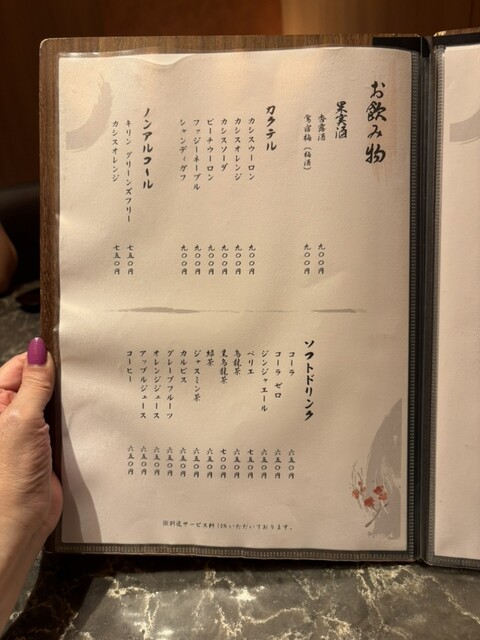 お飲み物
果実酒
杏露酒 九〇〇円
鶯宿梅 (梅酒) 九〇〇円
カクテル
カシスウーロン 九〇〇円
カシスオレンジ 九〇〇円
カシスソーダ 九〇〇円
ピーチウーロン 九〇〇円
ファジーネーブル 九〇〇円
シャンディガフ 九〇〇円
ノンアルコール
キリン グリーンズフリー 七五〇円
カシスオレンジ 七五〇円
ソフトドリンク
コーラ 六五〇円
コーラ ゼロ 六五〇円
ジンジャエール 六五〇円
ペリエ 七五〇円
烏龍茶 六五〇円
黒烏龍茶 七〇〇円
緑茶 六五〇円
ジャスミン茶 六五〇円
カルピス 六五〇円
グレープフルーツ 六五〇円
オレンジジュース 六五〇円
アップルジュース 六五〇円
コーヒー 六五〇円
※別途サービス料10%いただいております。